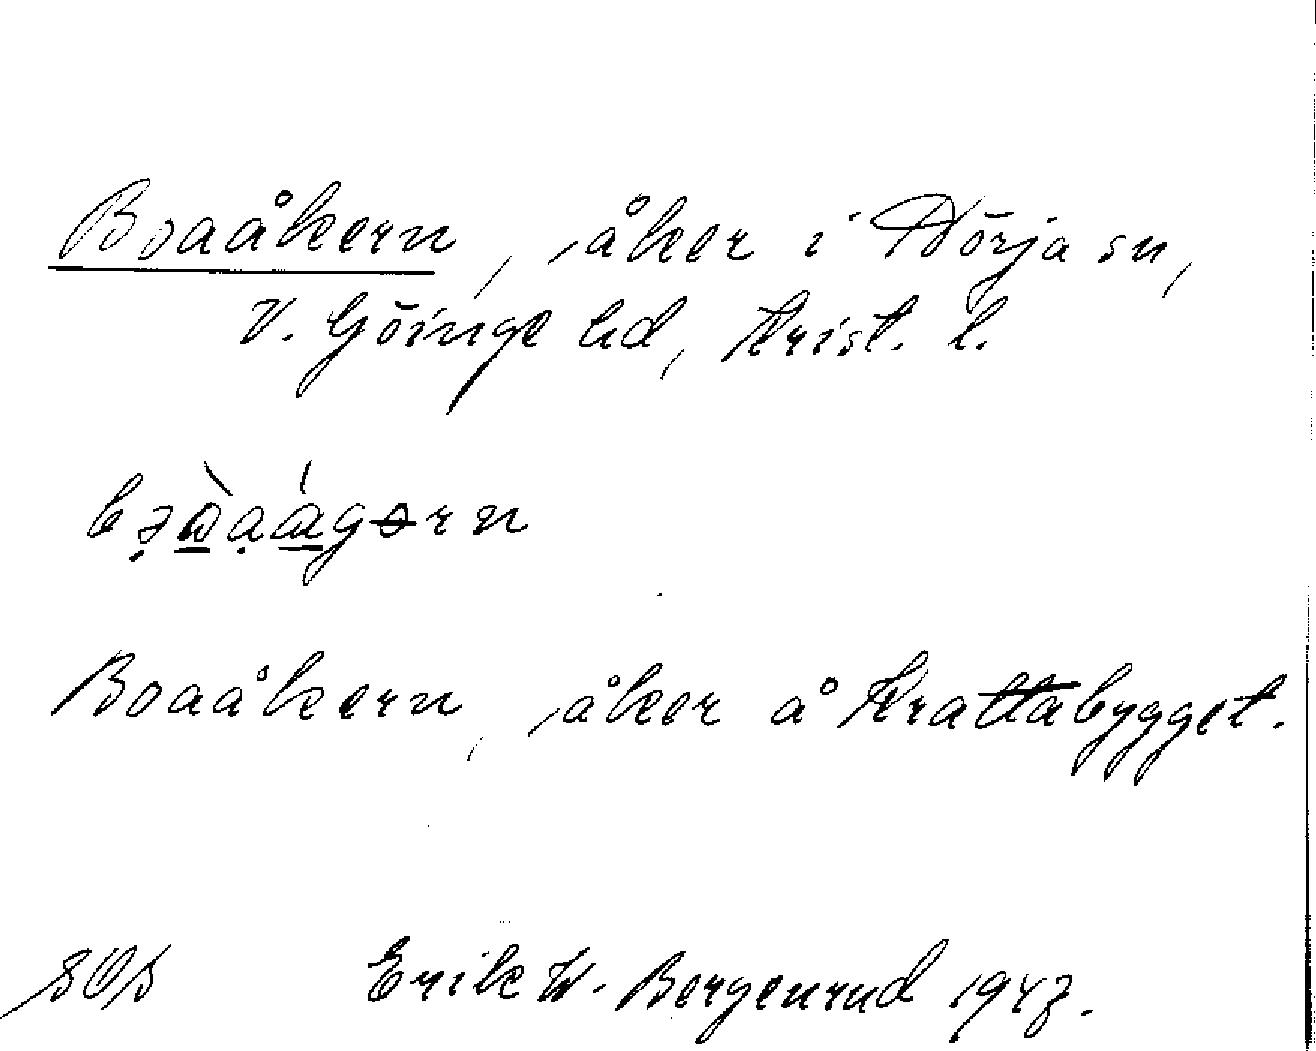 Boaåkern, åker i Nörja sn,
V. Göinge hd, Krist. l.
Boaåkern, åker å Krattabygget.
Erik W. Bergenrud 1947.